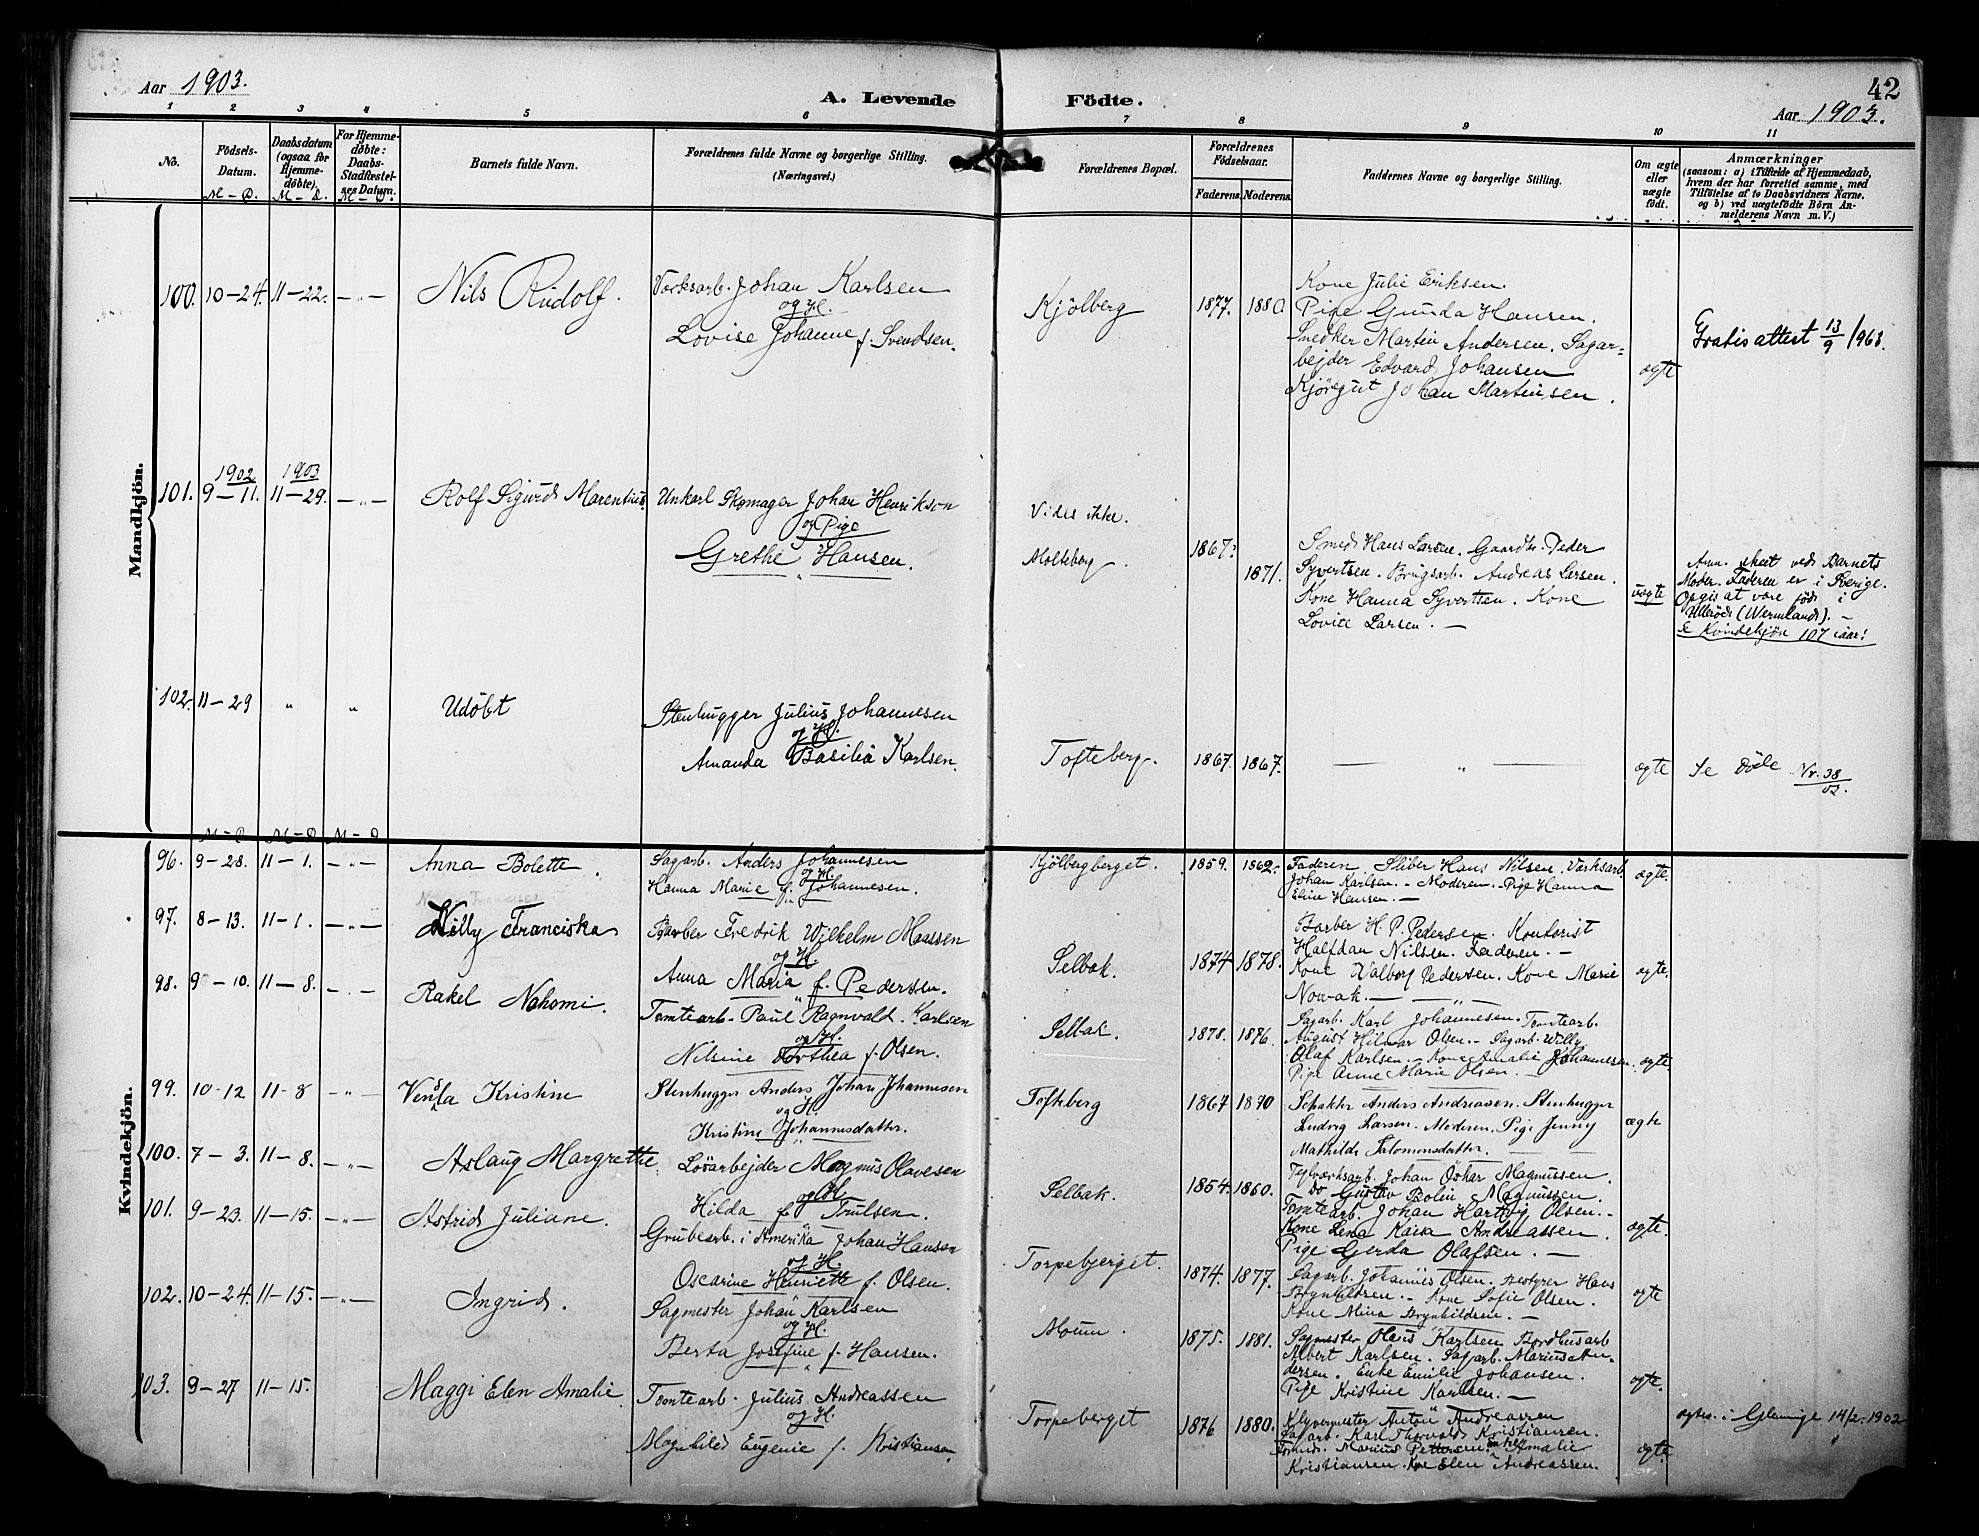 Aar 1903.
A. Levende Födte.
42
Aar 1903.
1 2 3 4 5 6 7 8 9 10 11
No.
Födsels-Datum.
M – D.
Daabsdatum (ogsaa for Hjemmedöbte).
M – D.
For Hjemmedøbte: Daabs-Stadfæstelses Datum.
M – D.
Barnets fulde Navn.
Forældrenes fulde Navne og borgerlige Stilling.
(Næringsvei.)
Forældrenes Bopæl.
Forældrenes Födselsaar.
Faderens. Moderens.
Faddernes Navne og borgerlige Stilling.
Om ægte eller uægte födt.
Anmærkninger
(saasom: a) i Tilfælde af Hjemmedaab, hvem der har forrettet samme, med Tilföielse af to Daabsvidners Navne, og b) ved uægtefödte Börn Anmelderens Navn m. V.)
Mandkjön.
100. 10–24. 11–22. – „ –
Nils Rudolf.
Værksarb. Johan Karlsen
og H.
Lovise Johanne f. Svendsen.
Kjölberg
1877. 1880.
Kone Julie Eriksen.
Pige Gunda Hansen.
Snedker Martin Andersen. Sagar=
bejder Edvard Johansen
Kjöregut Johan Martinsen.
ægte
Gratis attest 13/9 1963.
101. 1902 9–11. 1903 11–29. – „ –
Rolf Sigurd Marentius.
Unkarl Skomager Johan Henrikson
og Pige
Grethe Hansen.
Vides ikke.
Molteberg
1867.
1871.
Smed Hans Larsen. Gaardbr. Peder
Syvertsen. Brugsarb. Andreas Larsen.
Kone Hanna Syvertsen. Kone
Lovise Larsen. –
uægte
Anm. skeet ved Barnets
Moder. Faderen er i Sverige.
Opgis at være född i
Ulleröd (Wermland). –
Se Kvindekjön 107 iaar!
102. 11–29 „ „
Udöbt
Stenhugger Julius Johannesen
og H.
Amanda Basilia Karlsen.
Tofteberg.
1867. 1867.
– „ –
ægte
Se Döde Nr. 38/03.
M – D M – D M – D
Kvindekjön.
96. 9–28. 11–1. – „ –
Anna Bolette.
Sagarb. Anders Johannesen
og H.
Hanna Marie f. Johannesen.
Kjölbergberget.
1859. 1862.
Faderen Sliber Hans Nilsen. Værksarb.
Johan Karlsen. – Moderen. – Pige Hanna
Eline Hansen. –
ægte.
97. 8–13. 11–1. – „ –
Willy Franciska
Barber Fredrik Wilhelm Maassen
og H.
Anna Maria f. Pedersen.
Selbak.
1874 1878.
Barber H. P. Pedersen. Kontorist
Halfdan Nilsen. Faderen. –
Kone Valborg Pedersen. Kone Marie
Nowak. – „ –
ægte.
98. 9–10. 11–8. – „ –
Rakel Nahomi.
Tomtearb. Paul Ragnvald Karlsen
og H.
Nilsine Dorthea f. Olsen.
Selbak.
1878. 1876.
Sagarb. Karl Johannesen. Tomtearb.
August Hilmar Olsen. – Sagarb. Willy
Olaf Karlsen. – Kone Amalie Johannesen.
Pige Anne Marie Olsen. –
ægte.
99. 10–12 11–8 – „ –
Vensla Kristine
Stenhugger Anders Johan Johannesen
og H.
Kristine Johannesdatter.
Tofteberg
1867 1870
Schakter Anders Andreasen. Stenhugger
Ludvig Larsen. Moderen. Pige Jenny
Mathilde Salomonsdatter.
ægte
100. 7–3. 11–8. – „ –
Aslaug Margrethe
Lösarbejder Magnus Olavesen
og H.
Hilda f. Trulsen.
Selbak.
1854. 1860.
Teglværksarb. Johan Oskar Magnussen.
Do Gustav Bolin Magnussen.
Tomtearb. Johan Hartvig Olsen. –
Kone Lena Kaisa Andreassen.
Pige Gerda Olafsen. –
ægte.
101. 9–23. 11–15. – „ –
Astrid Juliane.
Grubearb. i Amerika Johan Hansen
og H.
Oscarine Henriette f. Olsen.
Torpebjerget.
1874. 1877.
Sagarb. Johannes Olsen. Bestyrer Hans
Brynhildsen. – Kone Sofie Olsen.
Kone Mina Brynhildsen. –
ægte
102. 10–24. 11–15. – „ –
Ingrid.
Sagmester Johan Karlsen
og H.
Berta Josefine f. Hansen.
Moum.
1875. 1881.
Sagmester Olaus Karlsen. Bordhusarb
Albert Karlsen. Sagarb. Marius An-
dersen. Enke Emilie Johansen.
Pige Kristine Karlsen. –
ægte.
103. 9–27 11–15.
Maggi Elen Amalie
Tomtearb. Julius Andreassen
og H.
Magnhild Eugenie f. Kristiansen
Torpeberget
1876 1880.
Klyvermester Anton Andreassen
Sagarb. Karl Thorvald Kristiansen.
Marius Pettersen. Amalie
Kristiansen. Kone Elen Andreassen.
ægte.
ægtev. i Glemminge 14/2-1902